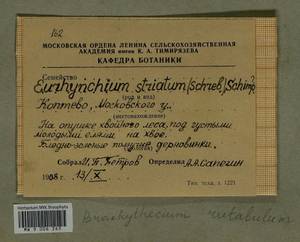 162
МОСКОВСКАЯ ОРДЕНА ЛЕНИНА СЕЛЬСКОХОЗЯЙСТВЕННАЯ
АКАДЕМИЯ имени К. А. ТИМИРЯЗЕВА
КАФЕДРА БОТАНИКИ
Семейство
Eurhynchium striatum (Schreb.) Schimp.
(род и вид)
Коптево, Московского у.
(местонахождение)
На опушке хвойного леса, под густыми
молодыми елями на хвое.
Бледно-зеленые ползучие дерновинки.
Собрал И. П. Петров Определил А.А. Сапегин
1908 г. 13/X
Тип. тсха з. 1221
Brachythecium rutabulum